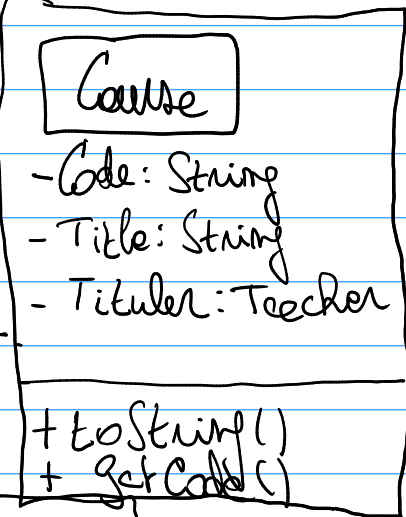 Course
- Code: String
- Title: String
- Tituler: Teacher
+ toString()
+ getCode()